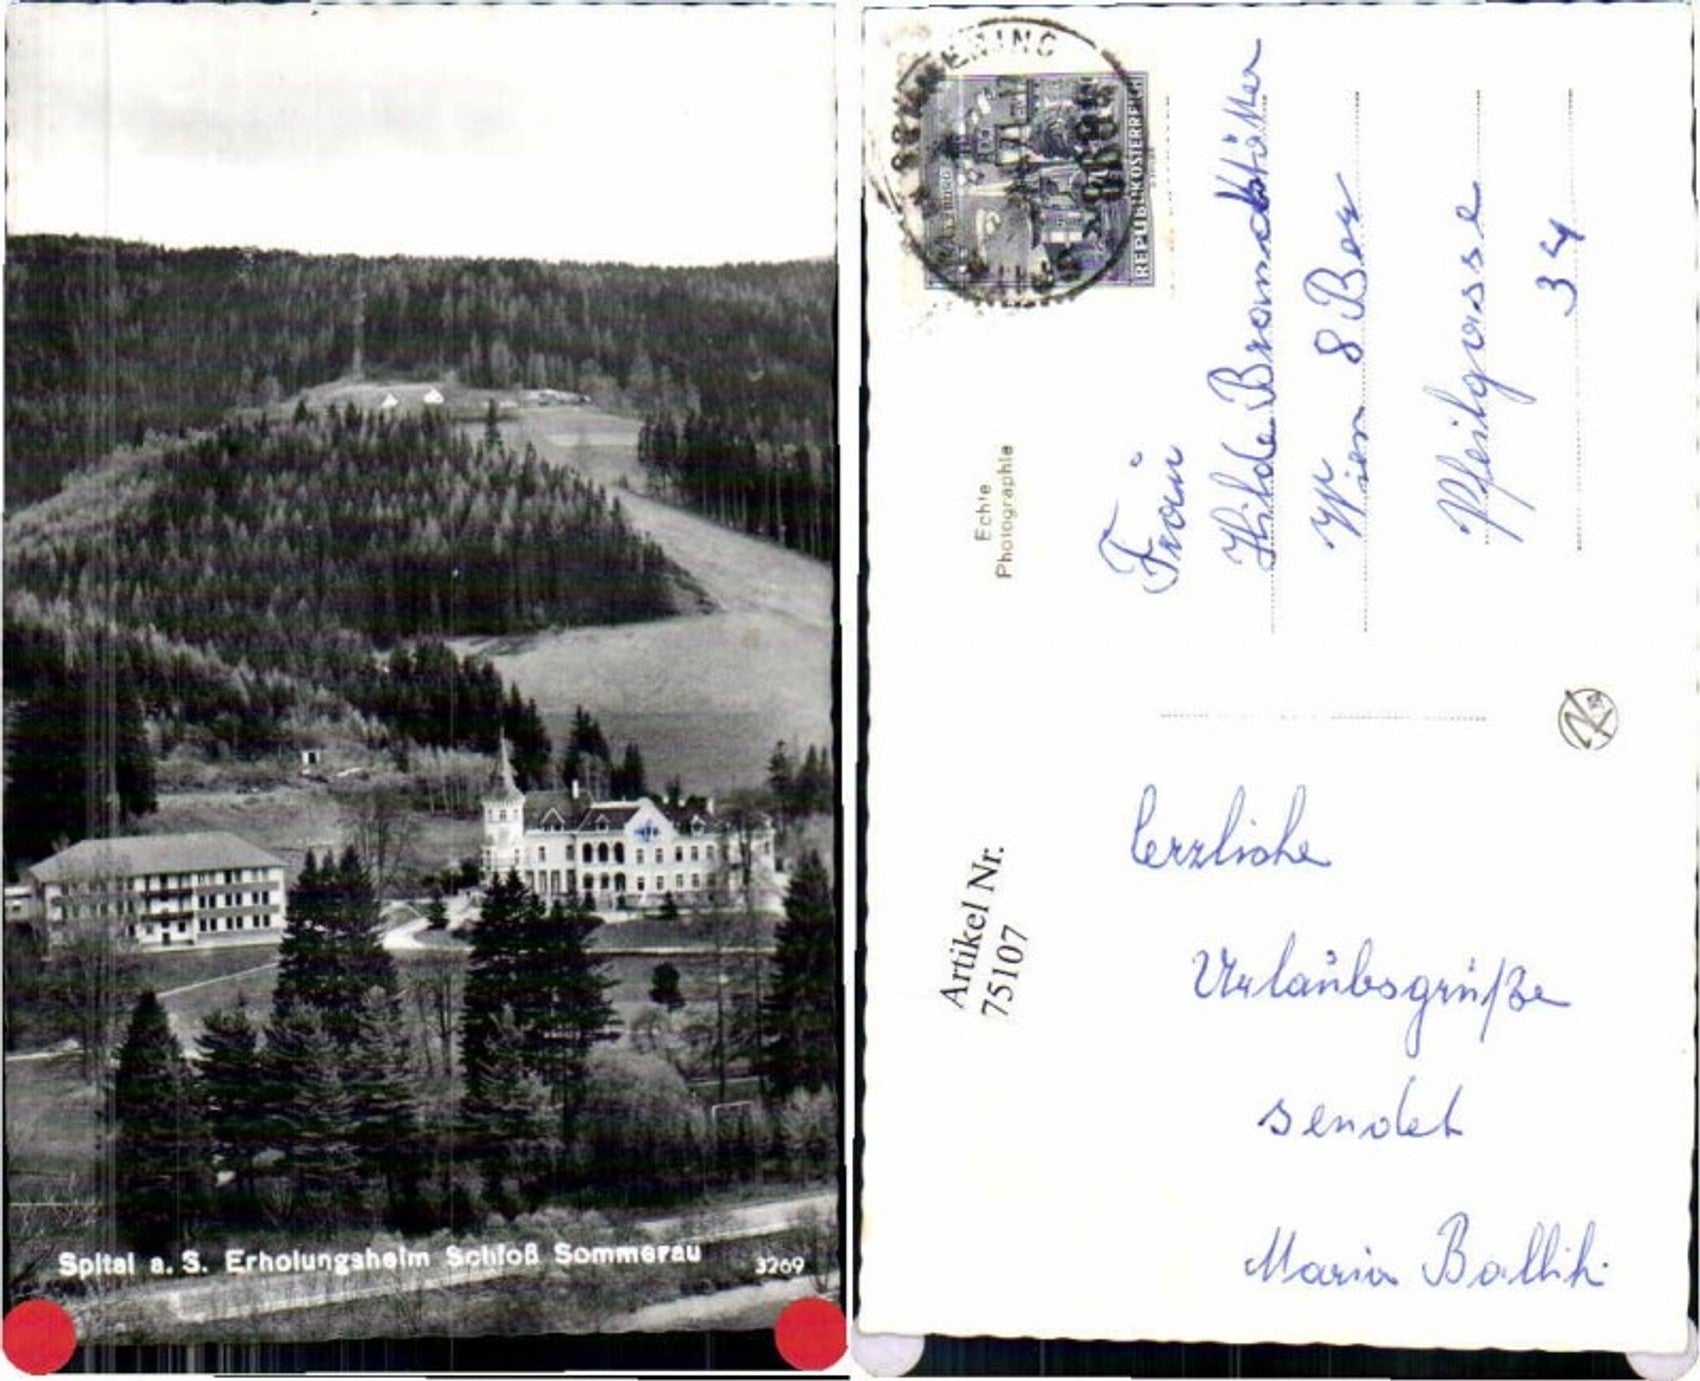 Spital a. S. Erholungsheim Schloß Sommerau
3269
REPUBLIK ÖSTERREICH
Echte
Photographie
Frau
Hilde Brandstätter
Wien 8 Bez
Pfeilgasse
34
Artikel Nr.
75107
herzliche
Urlaubsgrüße
sendet
Maria